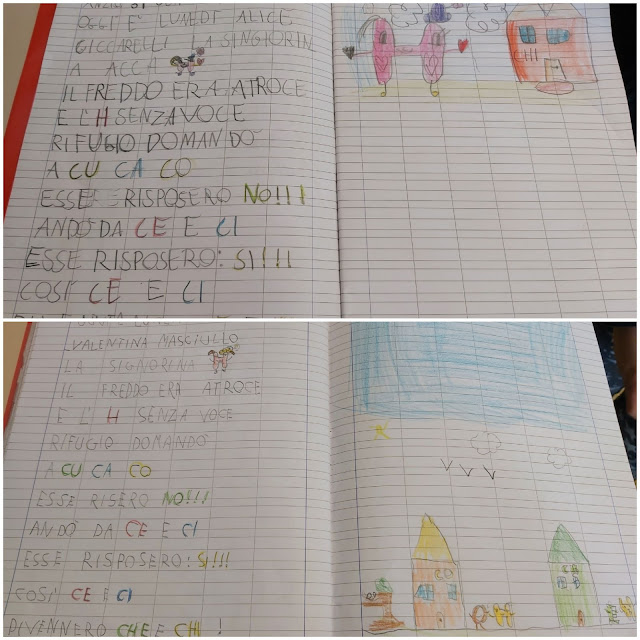 OGGI E' LUNEDI ALICE
CICCARELLI LA SINGIORIN
A ACCA
IL FREDDO ERA ATROCE
E L'H SENZA VOCE
RIFUGIO DOMANDÒ
A CU CA CO
ESSE RISPOSERO NO!!!
ANDÒ DA CE E CI
ESSE RISPOSERO: SI!!!
COSÌ CE E CI
VALENTINA MASCIULLO
LA SIGNORINA
IL FREDDO ERA ATROCE
E L'H SENZA VOCE
RIFUGIO DOMANDÒ
A CU CA CO
ESSE RISERO NO!!!
ANDÒ DA CE E CI
ESSE RISPOSERO: SI!!!
COSÌ CE E CI
DIVENNERO CHE E CHI !